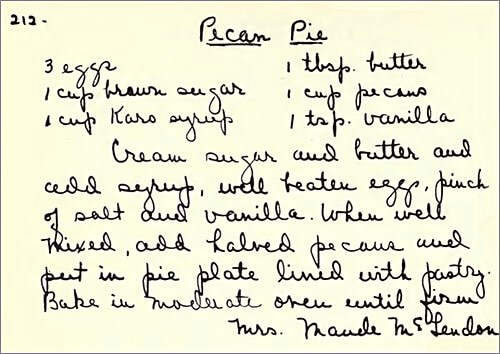 212-
Pecan Pie
3 eggs 1 tbsp. butter
1 cup brown sugar 1 cup pecans
1 cup Karo syrup 1 tsp. vanilla
Cream sugar and butter and
add syrup, well beaten eggs, pinch
of salt and vanilla. When well
mixed, add halved pecans and
put in pie plate lined with pastry.
Bake in moderate oven until firm
Mrs. Maude McLendon